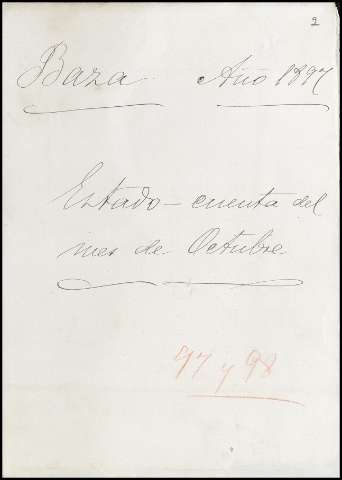 2
Baza Año 1897
Estado-cuenta del
mes de Octubre
97 y 98